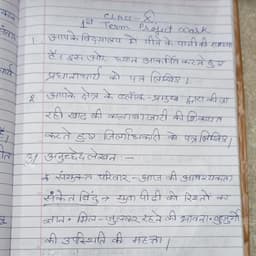 Class - X
1st Term Project Work
1. आपके विद्यालय में पीने के पानी की समस्या
है। इस ओर ध्यान आकर्षित करते हुए
प्रधानाचार्य को पत्र लिखिए।
2. आपके क्षेत्र के ब्लॉक-प्रमुख द्वारा की जा
रही खाद की कालाबाजारी की शिकायत
करते हुए जिलाधिकारी को पत्र लिखिए।
3) अनुच्छेद लेखन -
संयुक्त परिवार - आज की आवश्यकता
संकेत बिंदु → युवा पीढ़ी को रिश्तों का
ज्ञान • मिल-जुलकर रहने की भावना • बुजुर्गों
की उपस्थिति की महत्ता।